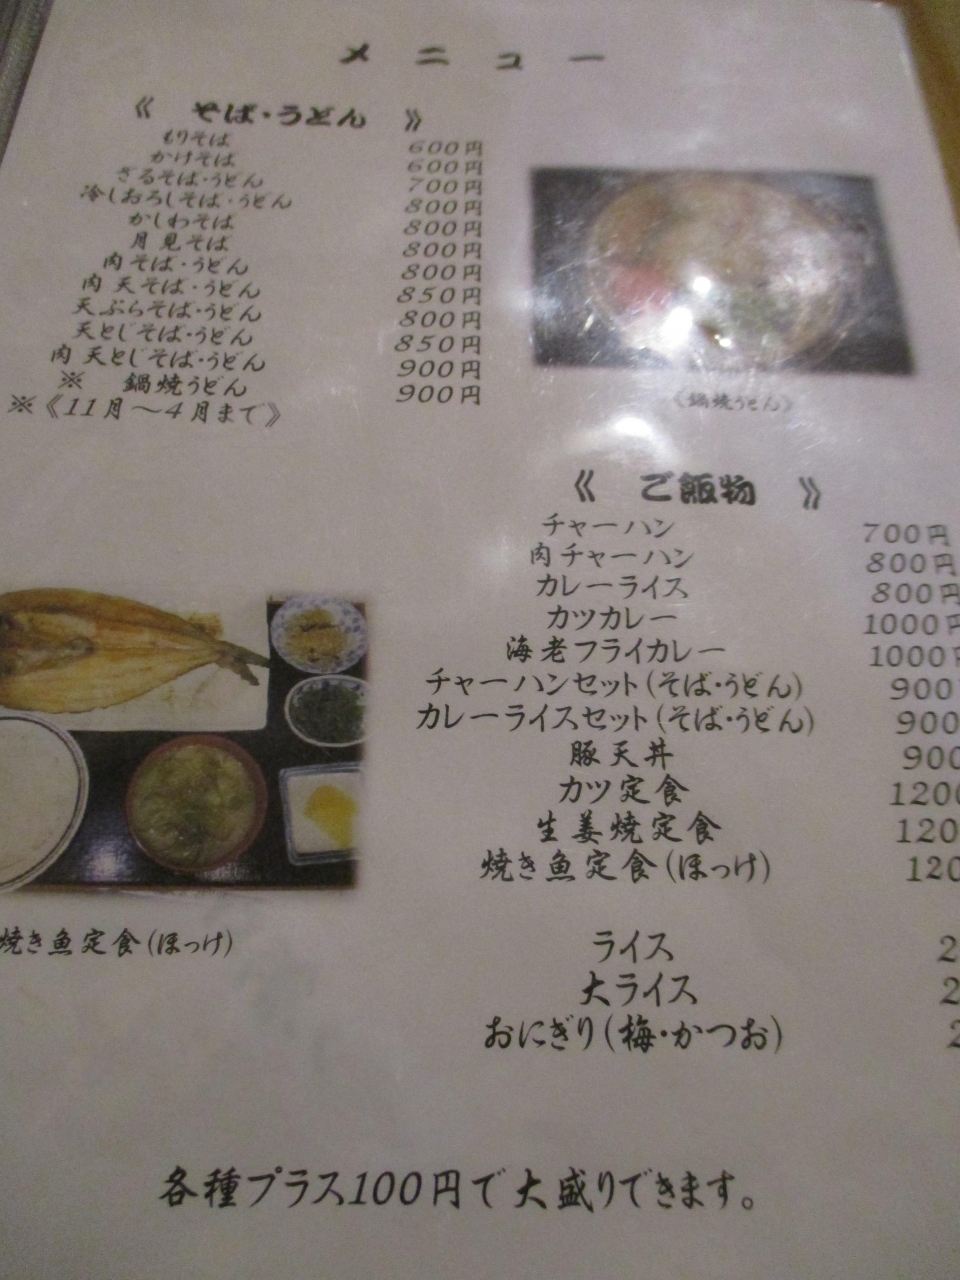 メニュー
《 そば・うどん 》
もりそば 600円
かけそば 600円
ざるそば・うどん 700円
冷しおろしそば・うどん 800円
かしわそば 800円
月見そば 800円
肉そば・うどん 800円
肉天そば・うどん 850円
天ぷらそば・うどん 800円
天とじそば・うどん 850円
肉天とじそば・うどん 900円
※ 鍋焼うどん 900円
※《11月～4月まで》
《鍋焼うどん》
《 ご飯物 》
チャーハン 700円
肉チャーハン 800円
カレーライス 800円
カツカレー 1000円
海老フライカレー 1000円
チャーハンセット(そば・うどん) 900
カレーライスセット(そば・うどん) 900
豚天丼 900
カツ定食 1200
生姜焼定食 120
焼き魚定食(ほっけ) 120
焼き魚定食(ほっけ)
ライス 2
大ライス 2
おにぎり(梅・かつお) 2
各種プラス100円で大盛りできます。